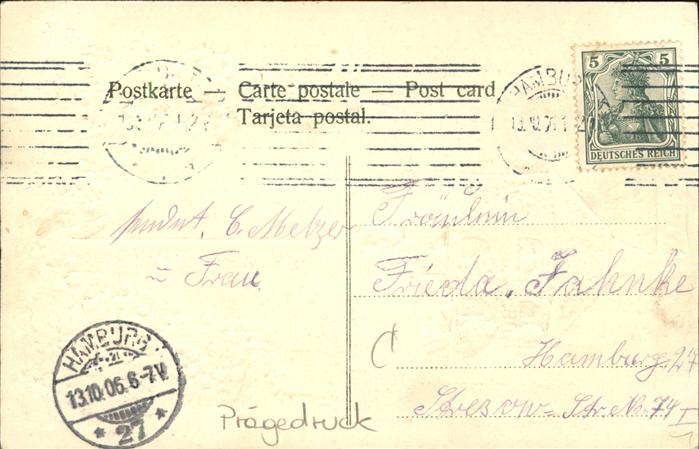 Postkarte — Carte postale — Post card
Tarjeta postal.
HAMBURG
13.10.06.1-2
5 5
DEUTSCHES REICH
sendet, C. Metzer
u Frau
Fräulein
Frieda, Jahnke
Hamburg 27
Stresow-Str. No. 74 I
HAMBURG
13.10.06.6-7V.
* 27 *
Prägedruck